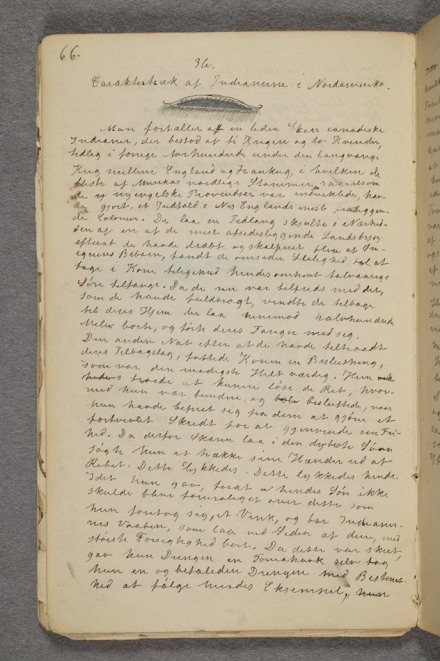 66.
36.
Caraktertræk af Indianerne i Nordamerika.
Man fortæller at en liden Skare canadiske
Indianer, der bestod af ti Krigere og to Kvinder,
tidlig i forrige Aarhundrede under den langvarige
Krig mellem England og Frankrig, i hvilken de
fleste af Amerikas nordlige Stammer saavelsom
de nyengelske Provindser var indviklede, hav-
de gjort et Indfald i Ny Englands mest
Colonier. De laa en Tidlang skjulte i Nærhe-
den af en af de mest afsidesliggende Landsbyer
efterat de havde dræbt og skalperet flere af
Beboere, fandt de omsider Leilighed til at
tage i Kone tilligemed hendes omtrent tolvaarige
Søn tilfange. Da de nu var tilfreds med det,
som de havde fuldbragt, vendte de tilbage
til deres Hjem der laa henimod halvhundrede
Mile borte, og førte deres Fanger med sig.
Den anden Nat efter at de havde tiltraadt
deres Tilbagetog, fattede Konen en Beslutning,
som var den modigste Helt værdig. Hun
troede at kunne løse de Reb, hvor-
med hun var bunden, og besluttede, naar
hun havde befriet sig fra dem at gjøre et
fortvivlet Skridt for at gjenvinde sin Fri-
hed. Da derfor Skaren laa i den dybeste Søvn
søgte hun at trække sine Hænder ud af
Rebet. Dette lykkedes. Dette lykkedes hende.
Idet hun gav, forat hendes Søn ikke
skulde blive forundret over dette som
hun foretog sig, et Vink, og bar Indianer-
nes Vaaben, som laa ved Siden af dem, med
største Forsigtighed bort. Da dette var skeet,
gav hun Drengen en Tomahawk selv tog
hun en og befalede Drengen med Bestemt-
hed at følge hendes Eksempel, hun